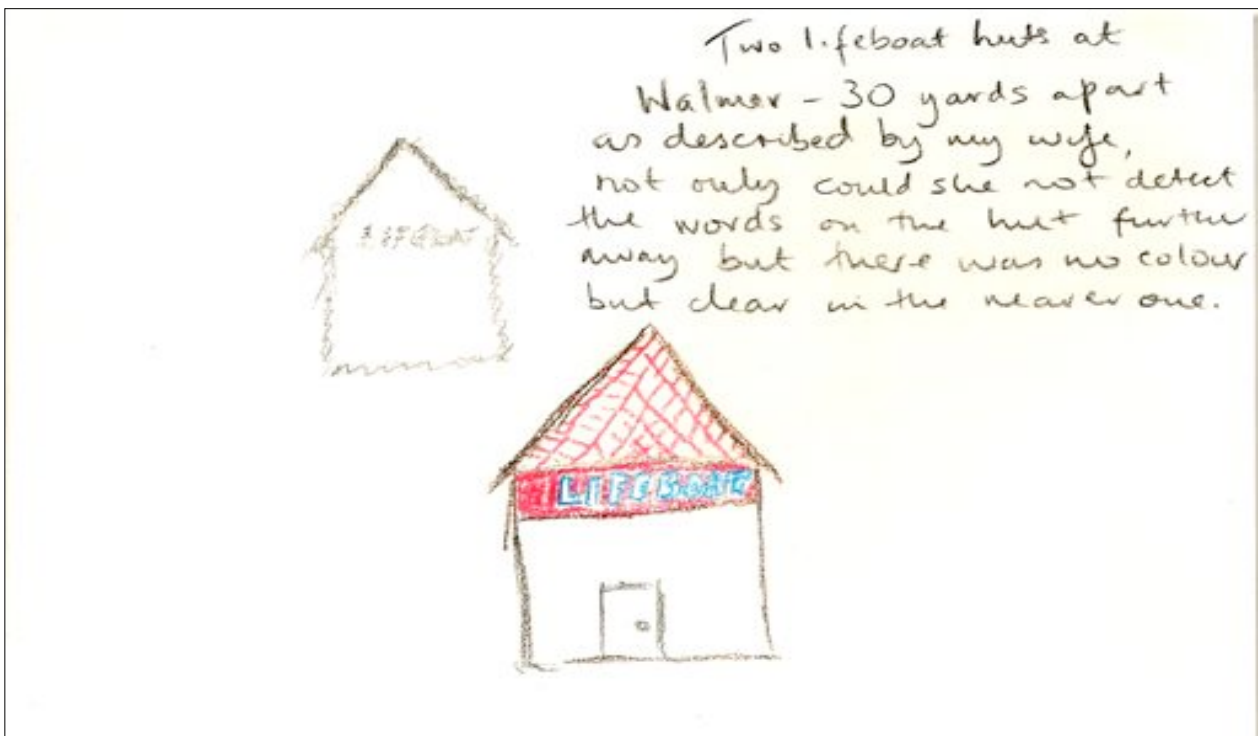 Two lifeboat huts at
Walmer - 30 yards apart
as described by my wife,
not only could she not detect
the words on the hut further
away but there was no colour
but clear in the nearer one.
LIFEBOAT